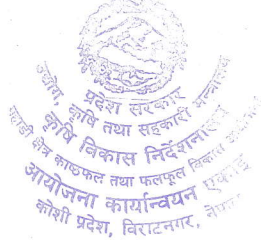 प्रदेश सरकार
उद्योग, कृषि तथा सहकारी मन्त्रालय
कृषि विकास निर्देशनालय
क्षेत्र काष्ठफल तथा फलफूल विकास
आयोजना कार्यान्वयन एकाई
कोशी प्रदेश, विराटनगर, नेपाल